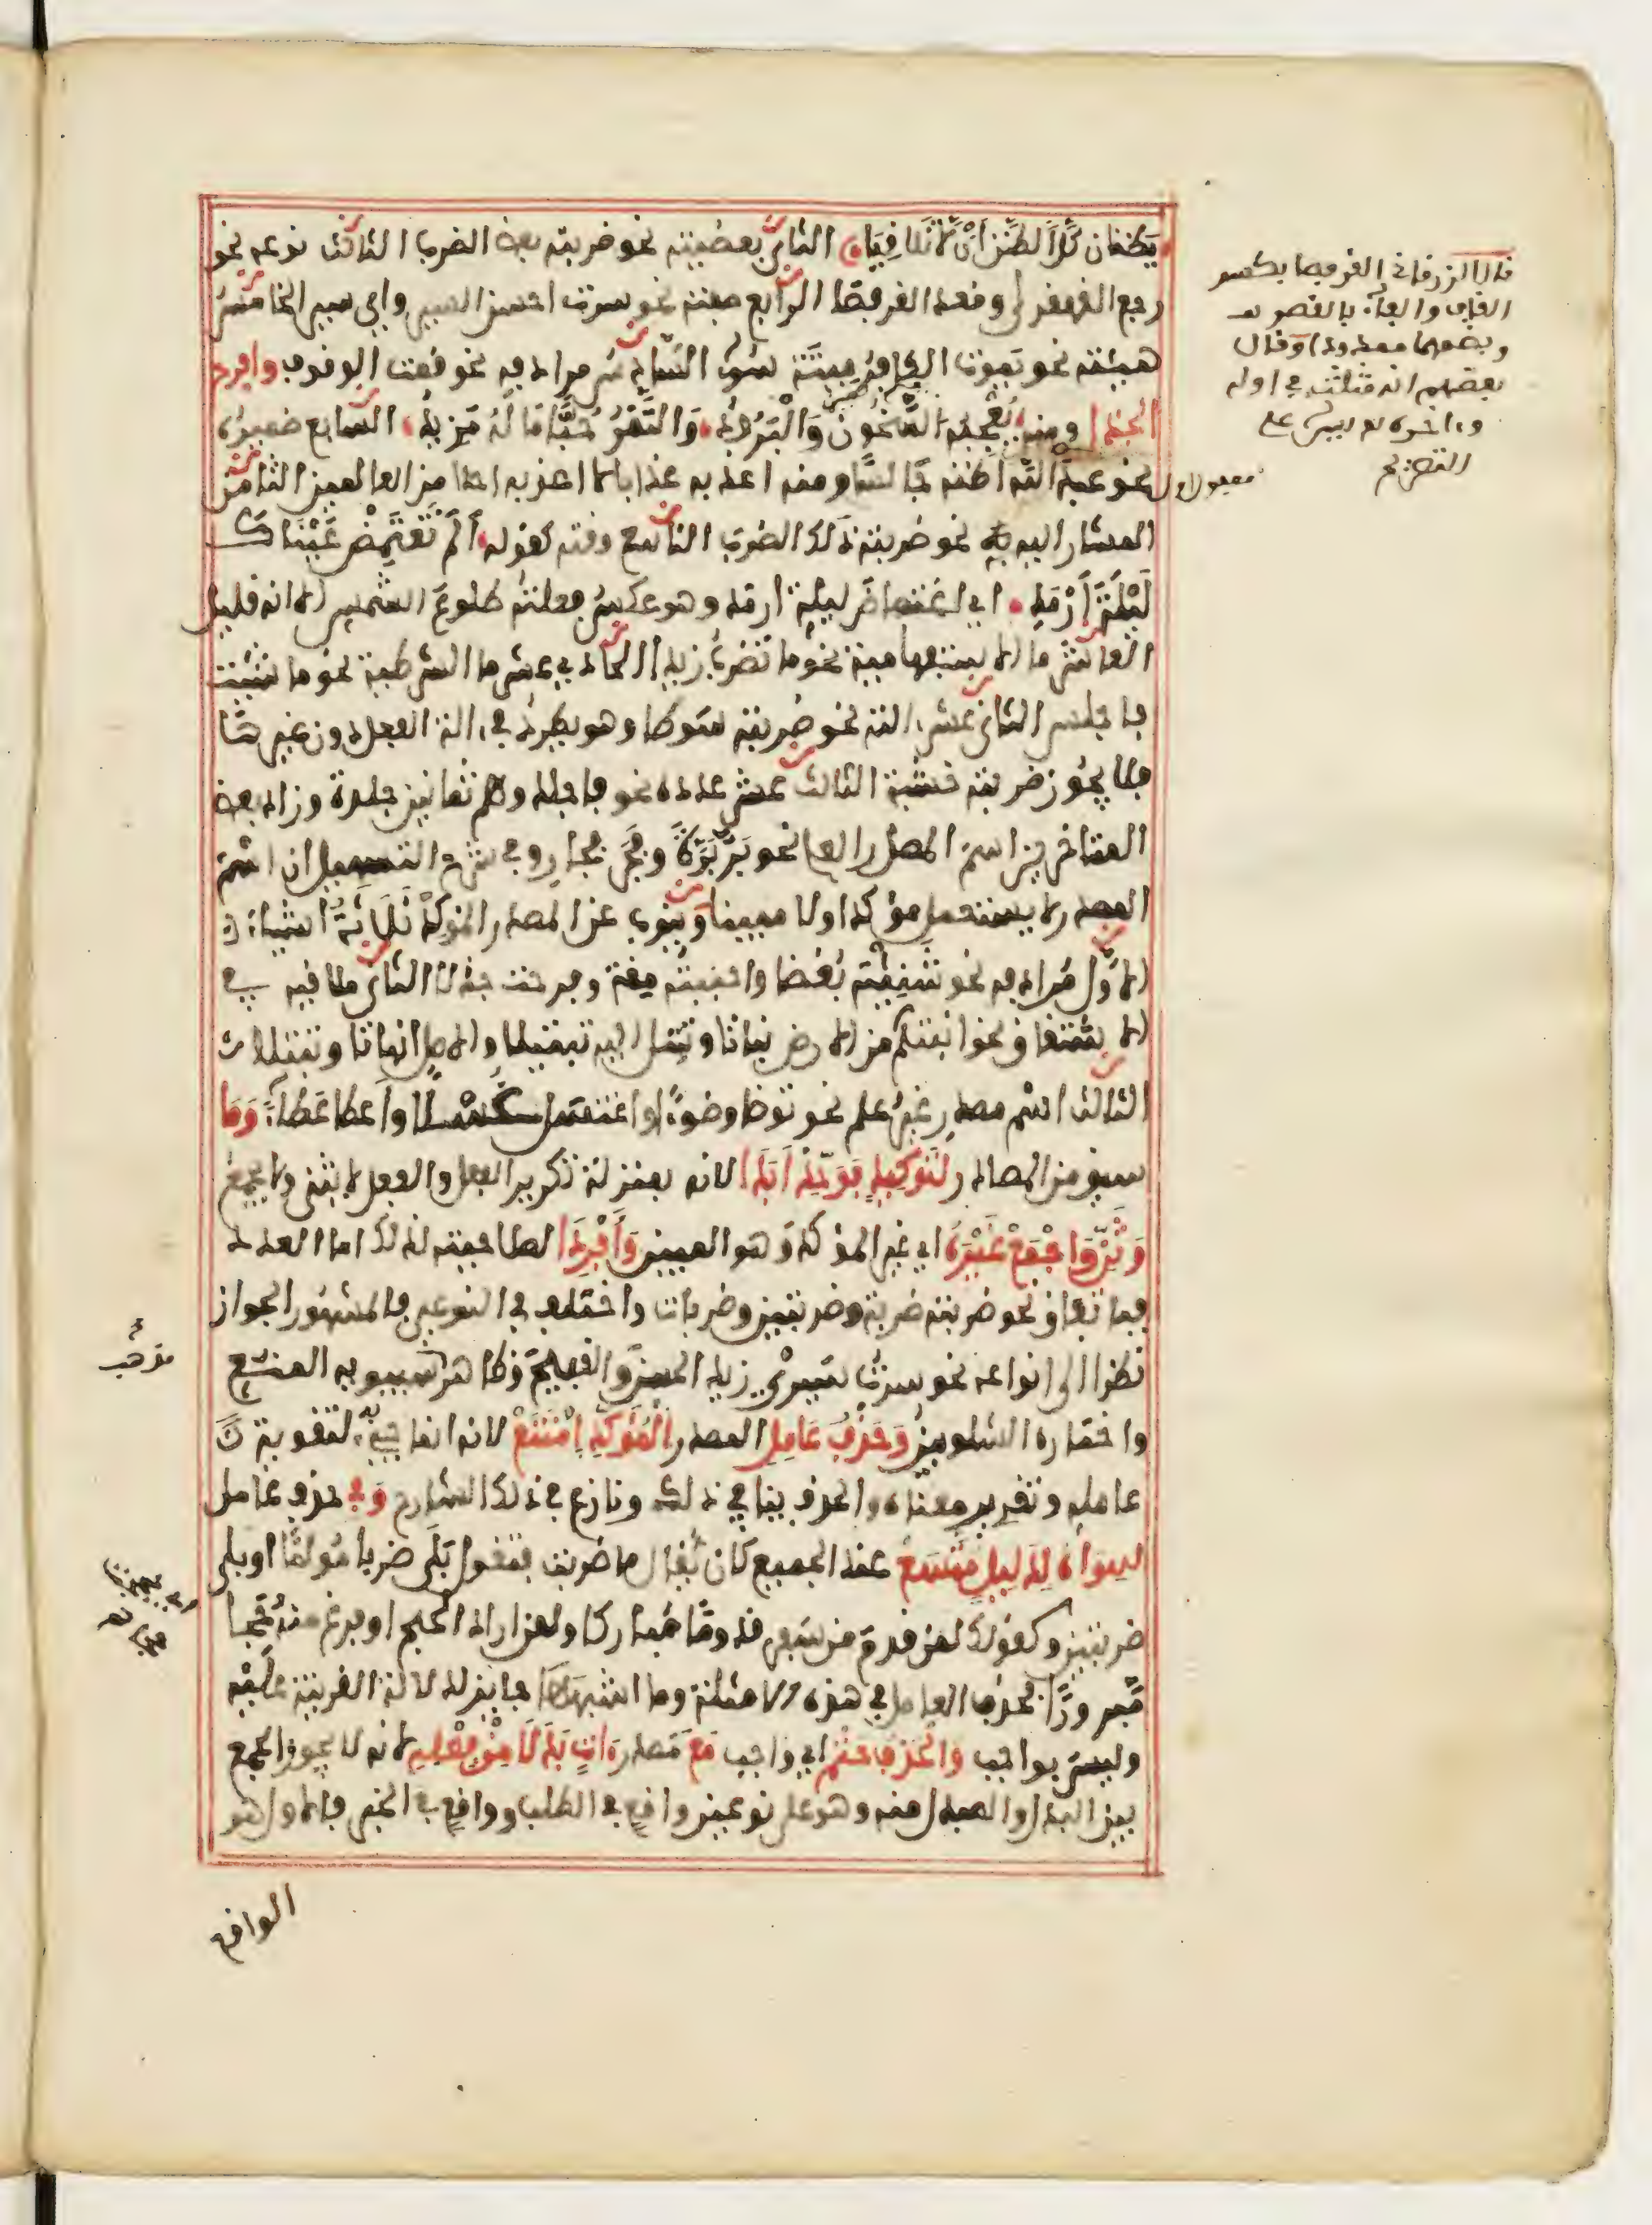 يظنان كل الظن أن لا تلاقيا الثاني بعضيته نحو ضربته بعض الضرب الثالث نوعه نحو
رجع القهقرى وقعد القرفصا الرابع صفته نحو سرت احسن السير واي سير الخامس
هيئته نحو يموت الكافر ميتة سوء السادس مرادفه نحو قعدت الوقوف وافرح
الجذل ومنه يعجبه السخون والبرود والتمر حبا ما له مزيد السابع ضميره
نحو عبد الله اظنه جالسا ومنه لا اعذبه عذابا لا اعذبه احدا من العالمين الثامن
المشار اليه به نحو ضربته ذلك الضرب التاسع وقته كقوله ألم تغتمض عيناك
ليلة أرمد اي اغتماض ليلة ارمد وهو عكس فعلته طلوع الشمس الا انه قليل
العاشر ما الاستفهامية نحو ما تضرب زيدا الحادي عشر ما الشرطية نحو ما شئت
فاجلس الثاني عشر ءالته نحو ضربته سوطا وهو يطرد في ءالة الفعل دون غيرها
فلا يجوز ضربته خشبة الثالث عشر عدده نحو فاجلدوهم ثمانين جلدة وزاد بعض
المتاخرين اسم المصدر العلم نحو بر برة وفجر فجار وفي شرح التسهيل ان اسم
المصدر لا يستعمل مؤكدا ولا مبينا وينوب عن المصدر المؤكد ثلاثة اشياء
الاول مرادفه نحو شنيته بغضا واحببته مقة وفرحت جذلا الثاني ملاقيه في
الاشتقاق نحو انبتكم من الارض نباتا وتبتل اليه تبتيلا والاصل انباتا وتبتلا
الثالث اسم مصدر غير علم نحو توضا وضوءا واغتسل غسلا واعطا عطاء وما
سبق من المصادر لتوكيد فوحد أبدا لانه بمنزلة تكرير الفعل والفعل لا يثنى ولا يجمع
وثن واجمع غيره اي غير المؤكد وهو المبين وأفردا لصلاحيته لذلك اما العدد
فباتفاق نحو ضربته ضربة وضربتين وضربات واختلف في النوعي فالمشهور الجواز
نظرا الى انواعه نحو سرت سيري زيد الحسن والقبيح وظاهر سيبويه المنع
واختاره الشلوبين وحذف عامل المصدر المؤكد امتنع لانه انما جيء به لتقوية
عامله وتقرير معناه والحذف ينافي ذلك ونازع في ذلك الشارح وفي حذف عامل
سواه لدليل متسع عند الجميع كان يقال ما ضربت فتقول بلى ضربا مؤلما او بلى
ضربتين وكقولك لمن قدم من سفر قدوما مباركا ولمن اراد الحج او فرغ منه حجا
مبرورا فحذف العامل في هذه الامثلة وما اشبهها جايز لدلالة القرينة عليه
وليس بواجب والحذف حتم اي واجب مع مصدر ءات بدلا من فعله لانه لا يجوز الجمع
بين البدل والمبدل منه وهو على نوعين واقع في الطلب وواقع في الخبر فالاول هو
الواقع
قال الزرقاني القرفصا بكسر
القاف والفاء بالقصر
وبضمهما ممدودا وقال
بعضهم انه مثلث في اوله
وءاخره
مفعول اول
مذهب